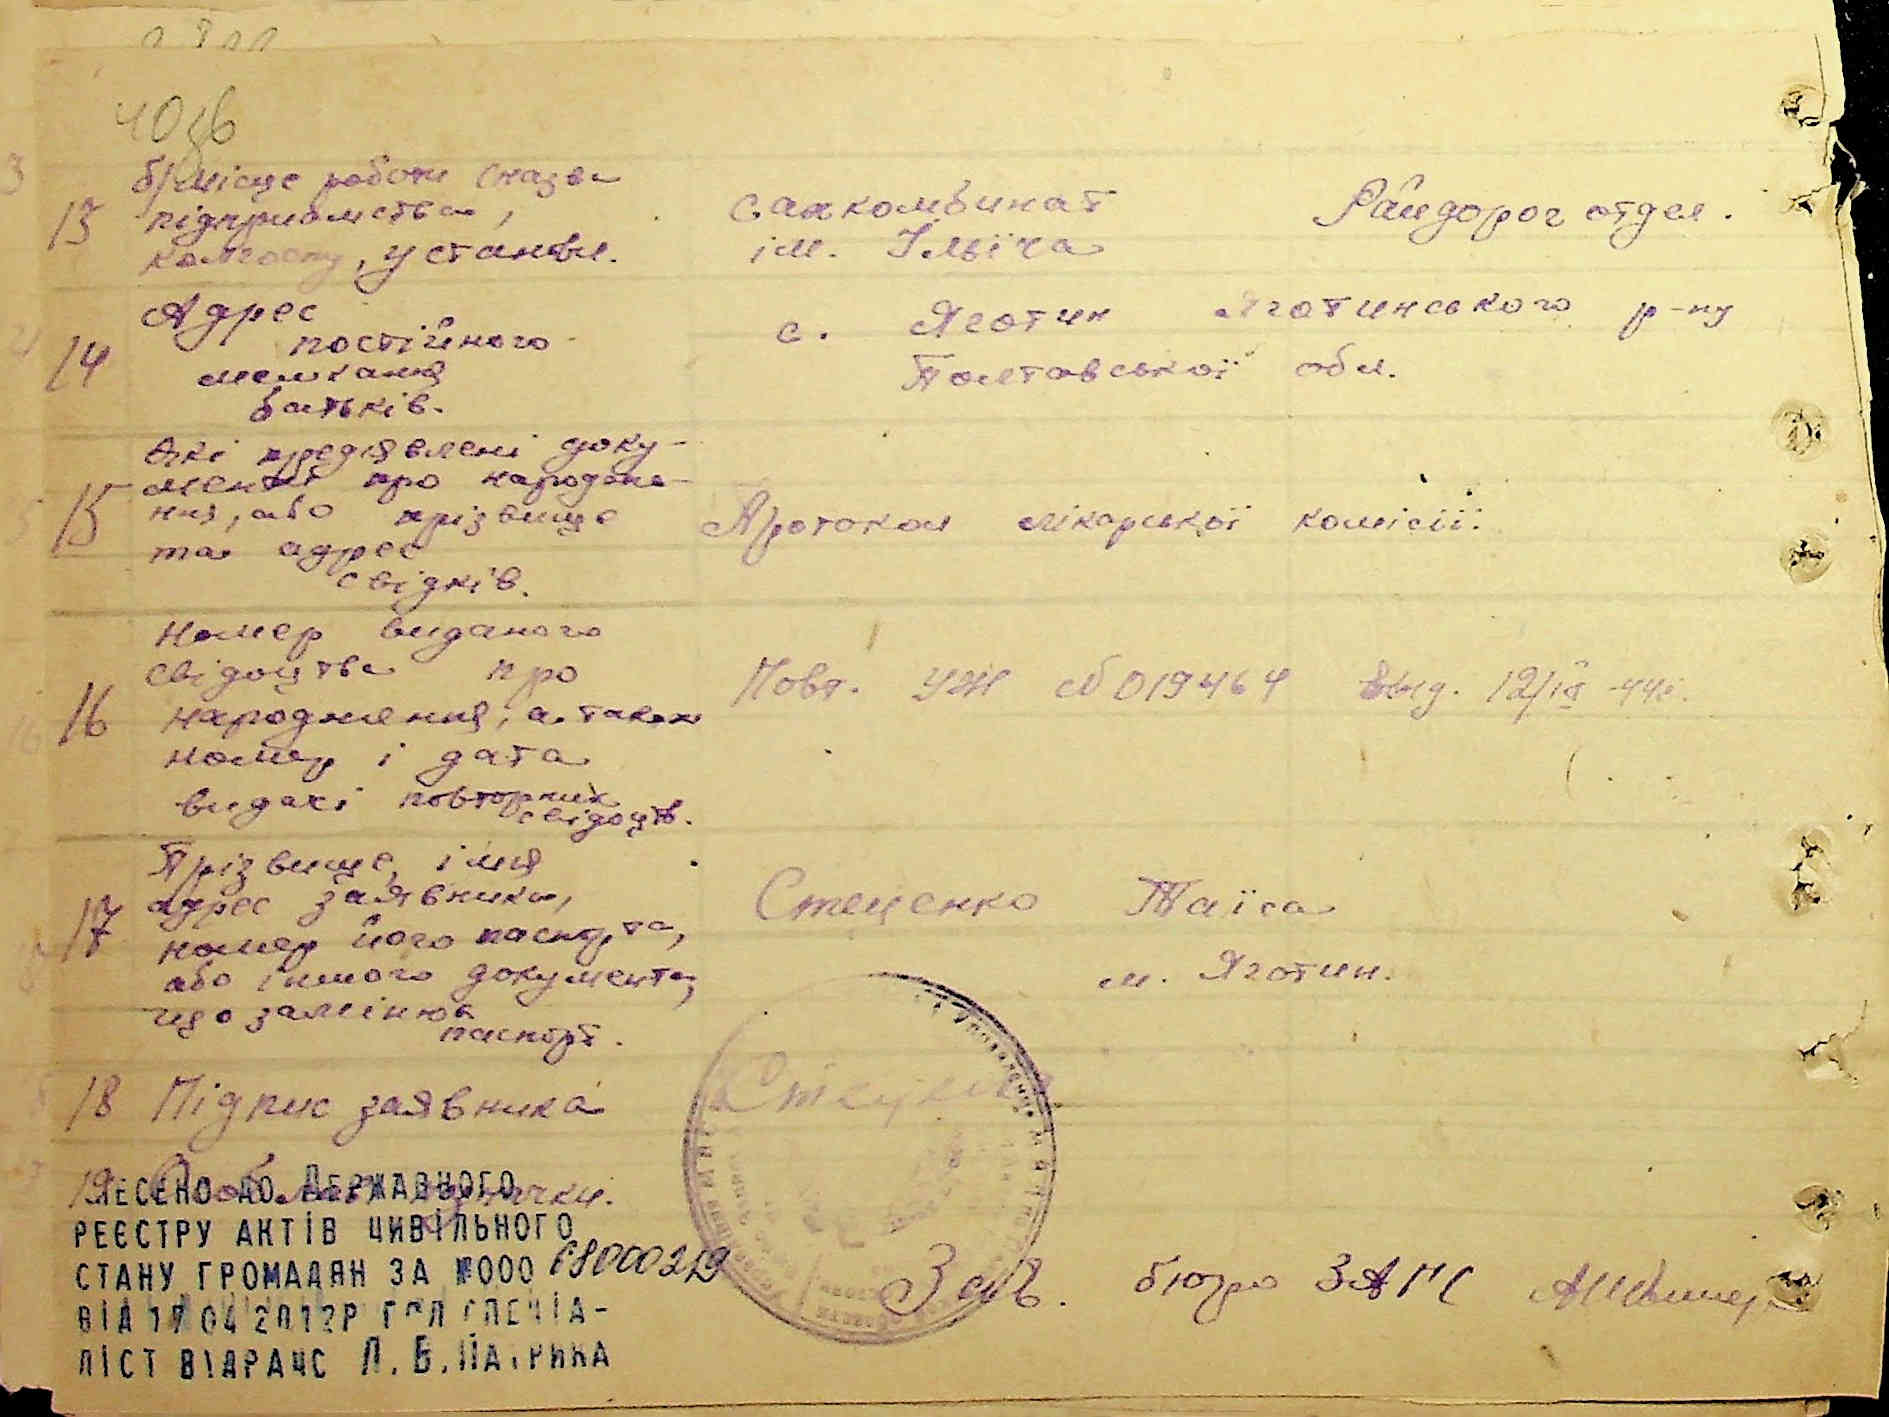 13 б/ місце роботи (назва
підприємства,
колгоспу, установи.
Сахкомбинат
ім. Ілліча
Райдорог отдел.
14 Адрес
постійного
мешкання
батьків.
с. Яготин Яготинського р-ну
Полтавської обл.
15 Які предявлені доку-
менти про народже-
ння, або прізвище
та адрес
свідків.
Протокол лікарської комісії.
16 Номер виданого
свідоцтва про
народження, а також
номер і дата
видачі повторних
свідоцтв.
Повт. УЖ № 019464 вид. 12/IX-44г.
17 Прізвище, імя
адрес заявника,
номер його паспорта,
або іншого документа,
що заміню
паспорт.
Стеценко Таїса
м. Яготин.
18 Підпис заявника
19
ДЕРЖАВНОГО
РЕЄСТРУ АКТІВ ЦИВІЛЬНОГО
СТАНУ ГРОМАДЯН ЗА №000
ВІД 17 04 2012Р ГОЛ СПЕЦІА-
ЛІСТ ВІДРАЦС
Зав. бюро ЗАГС